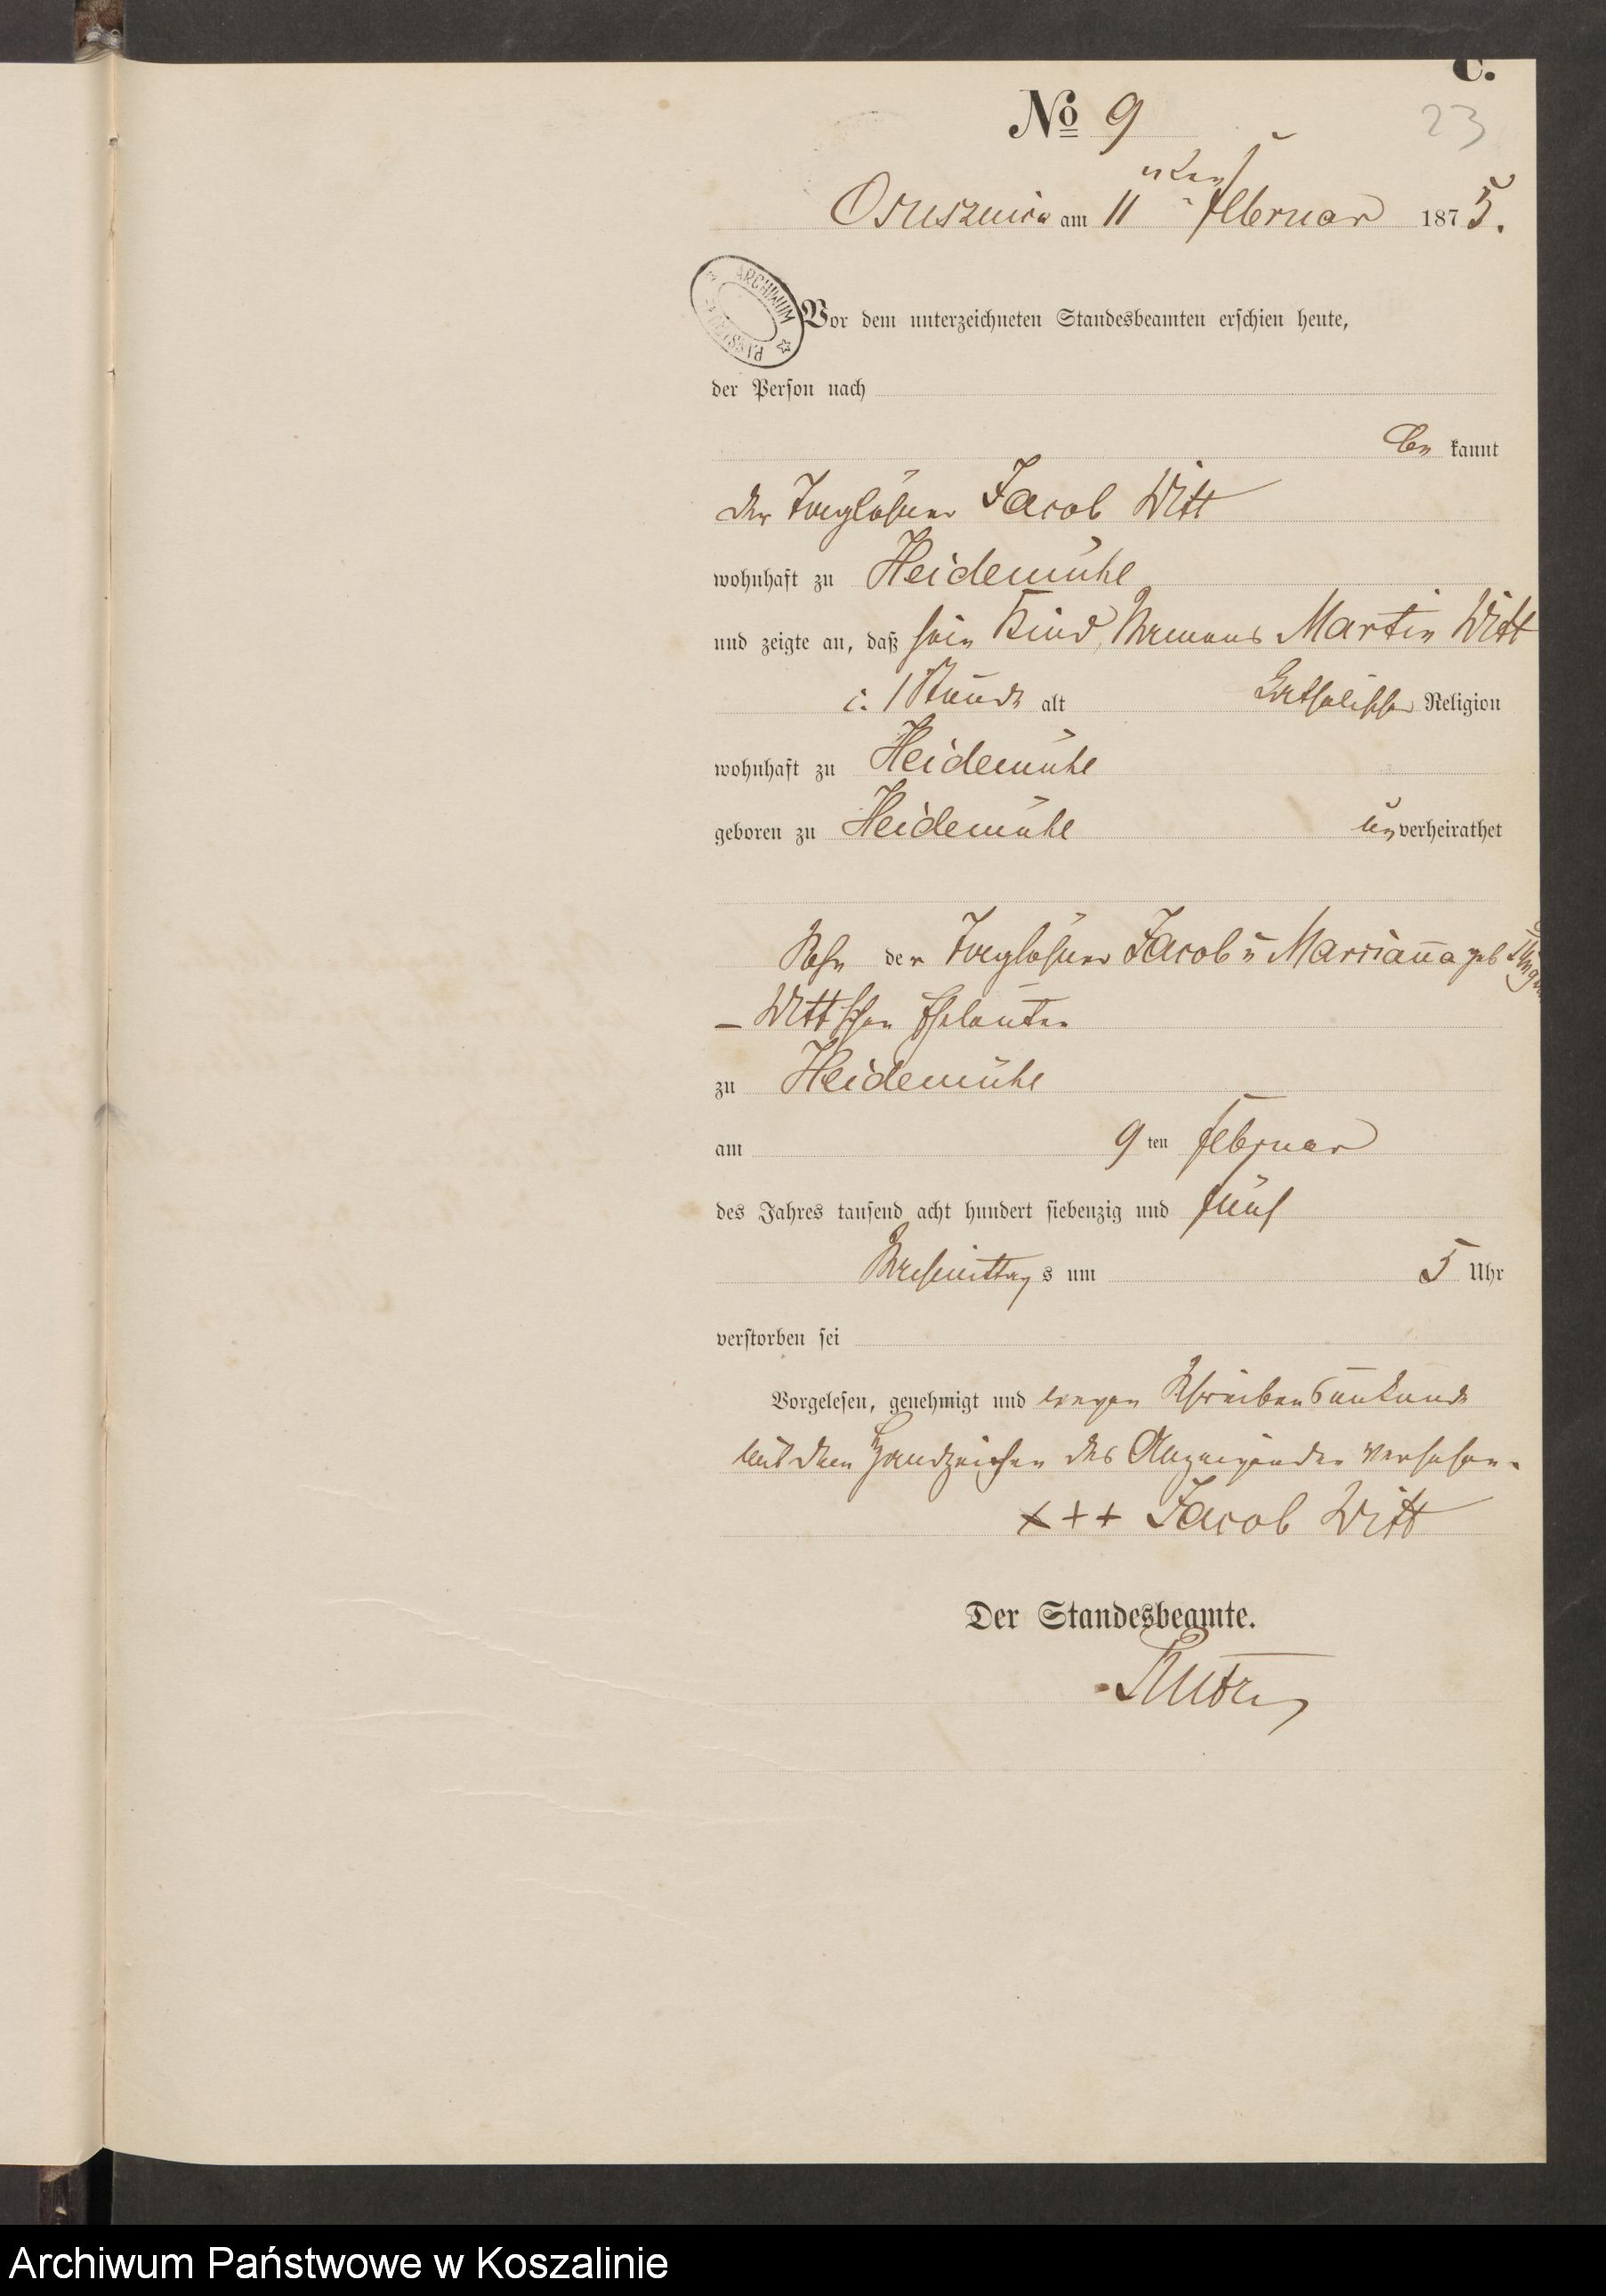 C.
No 9
23
Osusznica am 11 ten Februar 1875.
ARCHIWUM
Vor dem unterzeichneten Standesbeamten erschien heute,
der Person nach
be kannt
der Tagelöhner Jacob Witt
wohnhaft zu Heidemühl
und zeigte an, daß sein Kind, Namens Martin Witt
c. 1 Stunde alt katholischer Religion
wohnhaft zu Heidemühl
geboren zu Heidemühl unverheirathet
Sohn der Tagelöhner Jacob u Marianna geb
– Witt'schen Eheleuten
zu Heidemühl
am 9 ten Februar
des Jahres tausend acht hundert siebenzig und fünf
Nachmittag s um 5 Uhr
verstorben sei
Vorgelesen, genehmigt und wegen Schreibensunkunde
mit dem Handzeichen des Anzeigenden versehen.
+++ Jacob Witt
Der Standesbeamte.
Archiwum Państwowe w Koszalinie